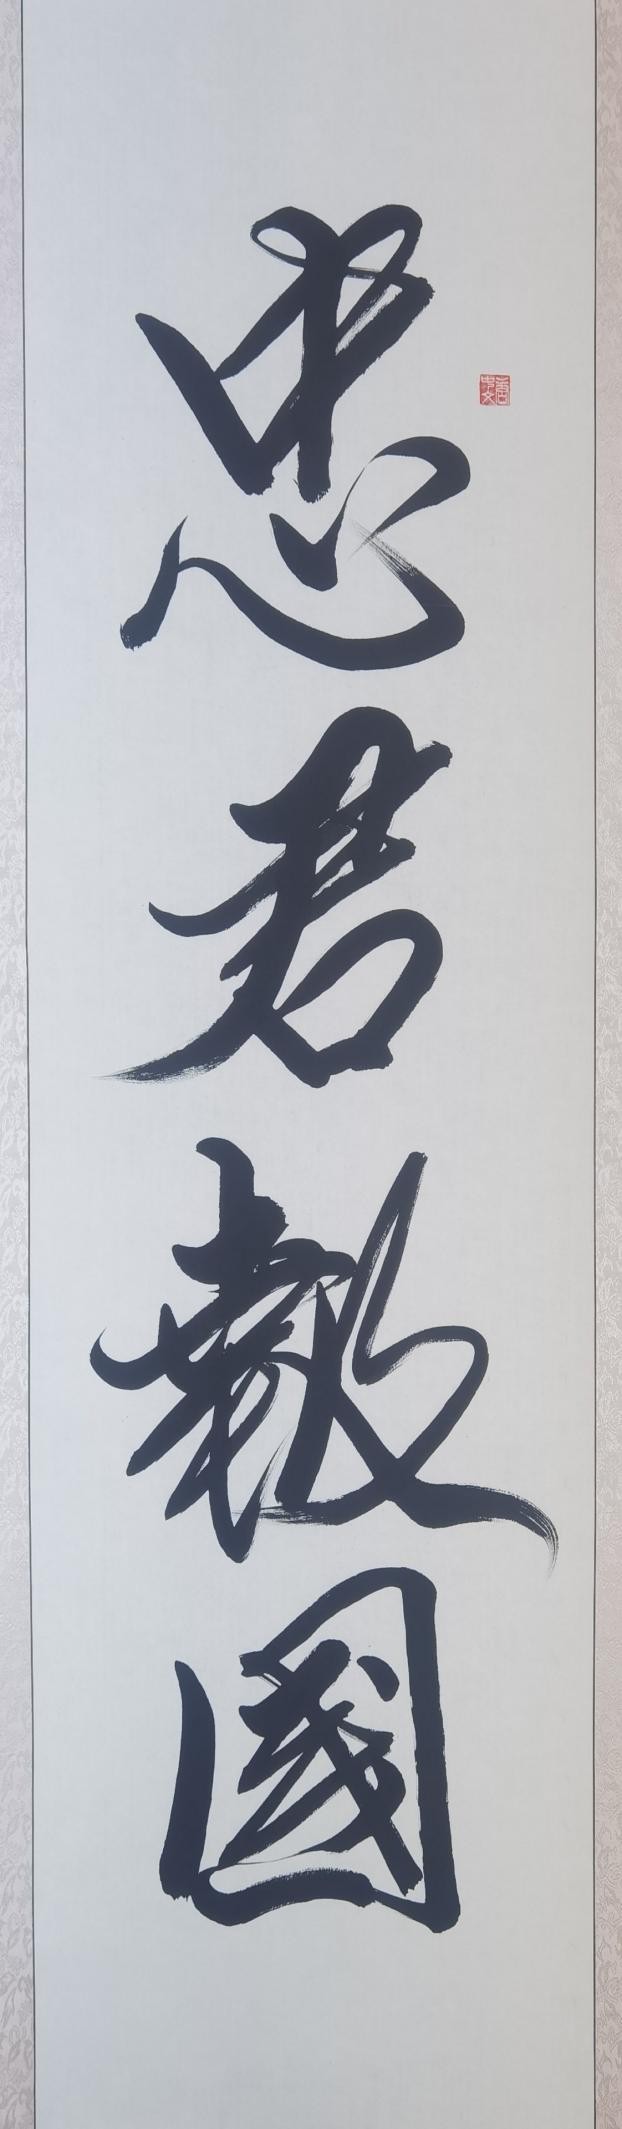 忠君報國